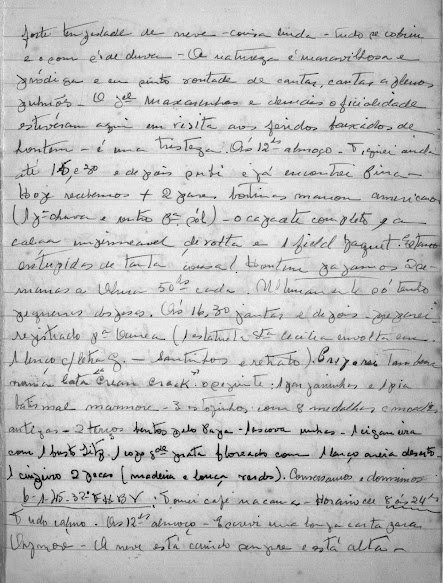 forte tempestade de neve - coisa linda - tudo se cobriu
e o som é de chuva - A natureza é maravilhosa e
pródiga e eu sinto vontade de cantar, cantar a plenos
pulmões. O gal Mascarenhas e demais oficialidade
estiveram aqui em visita aos feridos baixados de
hontem - é uma tristeza. Ás 12hs almoço -
até 15,30 e depois subi e já encontrei
Hoje recebemos + 2 pares botinas marron americanos
(1 pa chuva e outro pa sol) - o capacete completo e a
calça impermeavel de volta e 1 field jaquet. Estamos
entupidas de tanta cousa! Hontem pagamos
50 cada.
pequenas despesas. Ás 16,30 jantar e depois preparei
registrado pa (1 estatueta Sta Cecilia envolta em
1 lenço c/ letra G. - santinhos e retrato). Preparei tambem
lata de Cream Crack o seguinte: 1 e 1 pia
batismal marmore - 3 estojinhos com 8 medalhas e moedas
antigas - 2 terços bentos pelo Papa - 1 escova unhas - 1 cigarreira
com 1 busto - 1 copo de prata floreado com 1 lenço areia deserto
1 cinzeiro 2 peças (madeira e louça verde). Conversamos e dormimos
6-1-45 - Tomei café na cama - Horario de 8 ás 24hs
Tudo calmo. Ás 12hs almoço - Escrevi uma longa carta para
- A neve está caindo sempre e está alta -